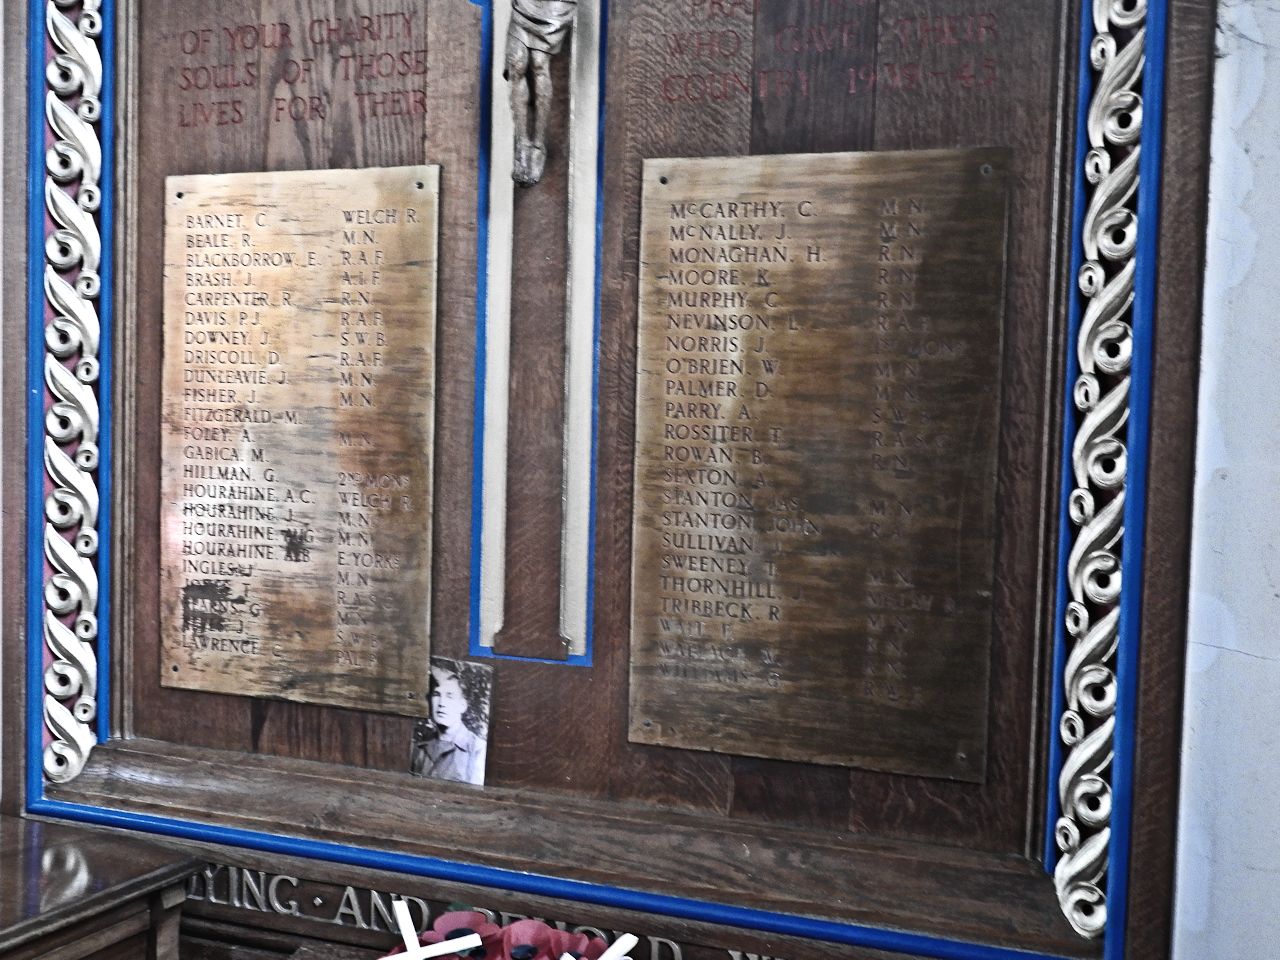 OF YOUR CHARITY
SOULS OF THOSE
LIVES FOR THEIR
WHO GAVE THEIR
COUNTRY 1939-45
BARNET. C. WELCH R.
BEALE. R. M.N.
BLACKBORROW. E. R.A.F.
BRASH. J. A.I.F.
CARPENTER. R. R.N.
DAVIS. P.J. R.A.F.
DOWNEY. J. S.W.B.
DRISCOLL. D. R.A.F.
DUNLEAVIE. J. M.N.
FISHER. J. M.N.
FITZGERALD. M.
FOLEY. A. M.N.
GABICA. M.
HILLMAN. G. 2ND MONS
HOURAHINE. A.C. WELCH R.
HOURAHINE. J. M.N.
HOURAHINE. M.N.
HOURAHINE. ALB E.YORKS
INGLES. J. M.N.
LAWRENCE. C.
MCCARTHY. C. M.N.
MCNALLY. J. M.N.
MONAGHAN. H. R.N.
MOORE. K. R.N.
MURPHY. C. R.N.
NEVINSON. L.
NORRIS. J.
O'BRIEN. W. M.N.
PALMER. D.
PARRY. A.
ROSSITER. T.
ROWAN. B.
SEXTON. A.
STANTON. JAS. M.N.
STANTON. JOHN
SULLIVAN.
SWEENEY. T. M.N.
THORNHILL. J.
TRIBBECK. R.
WILLIAMS. G.
LYING · AND